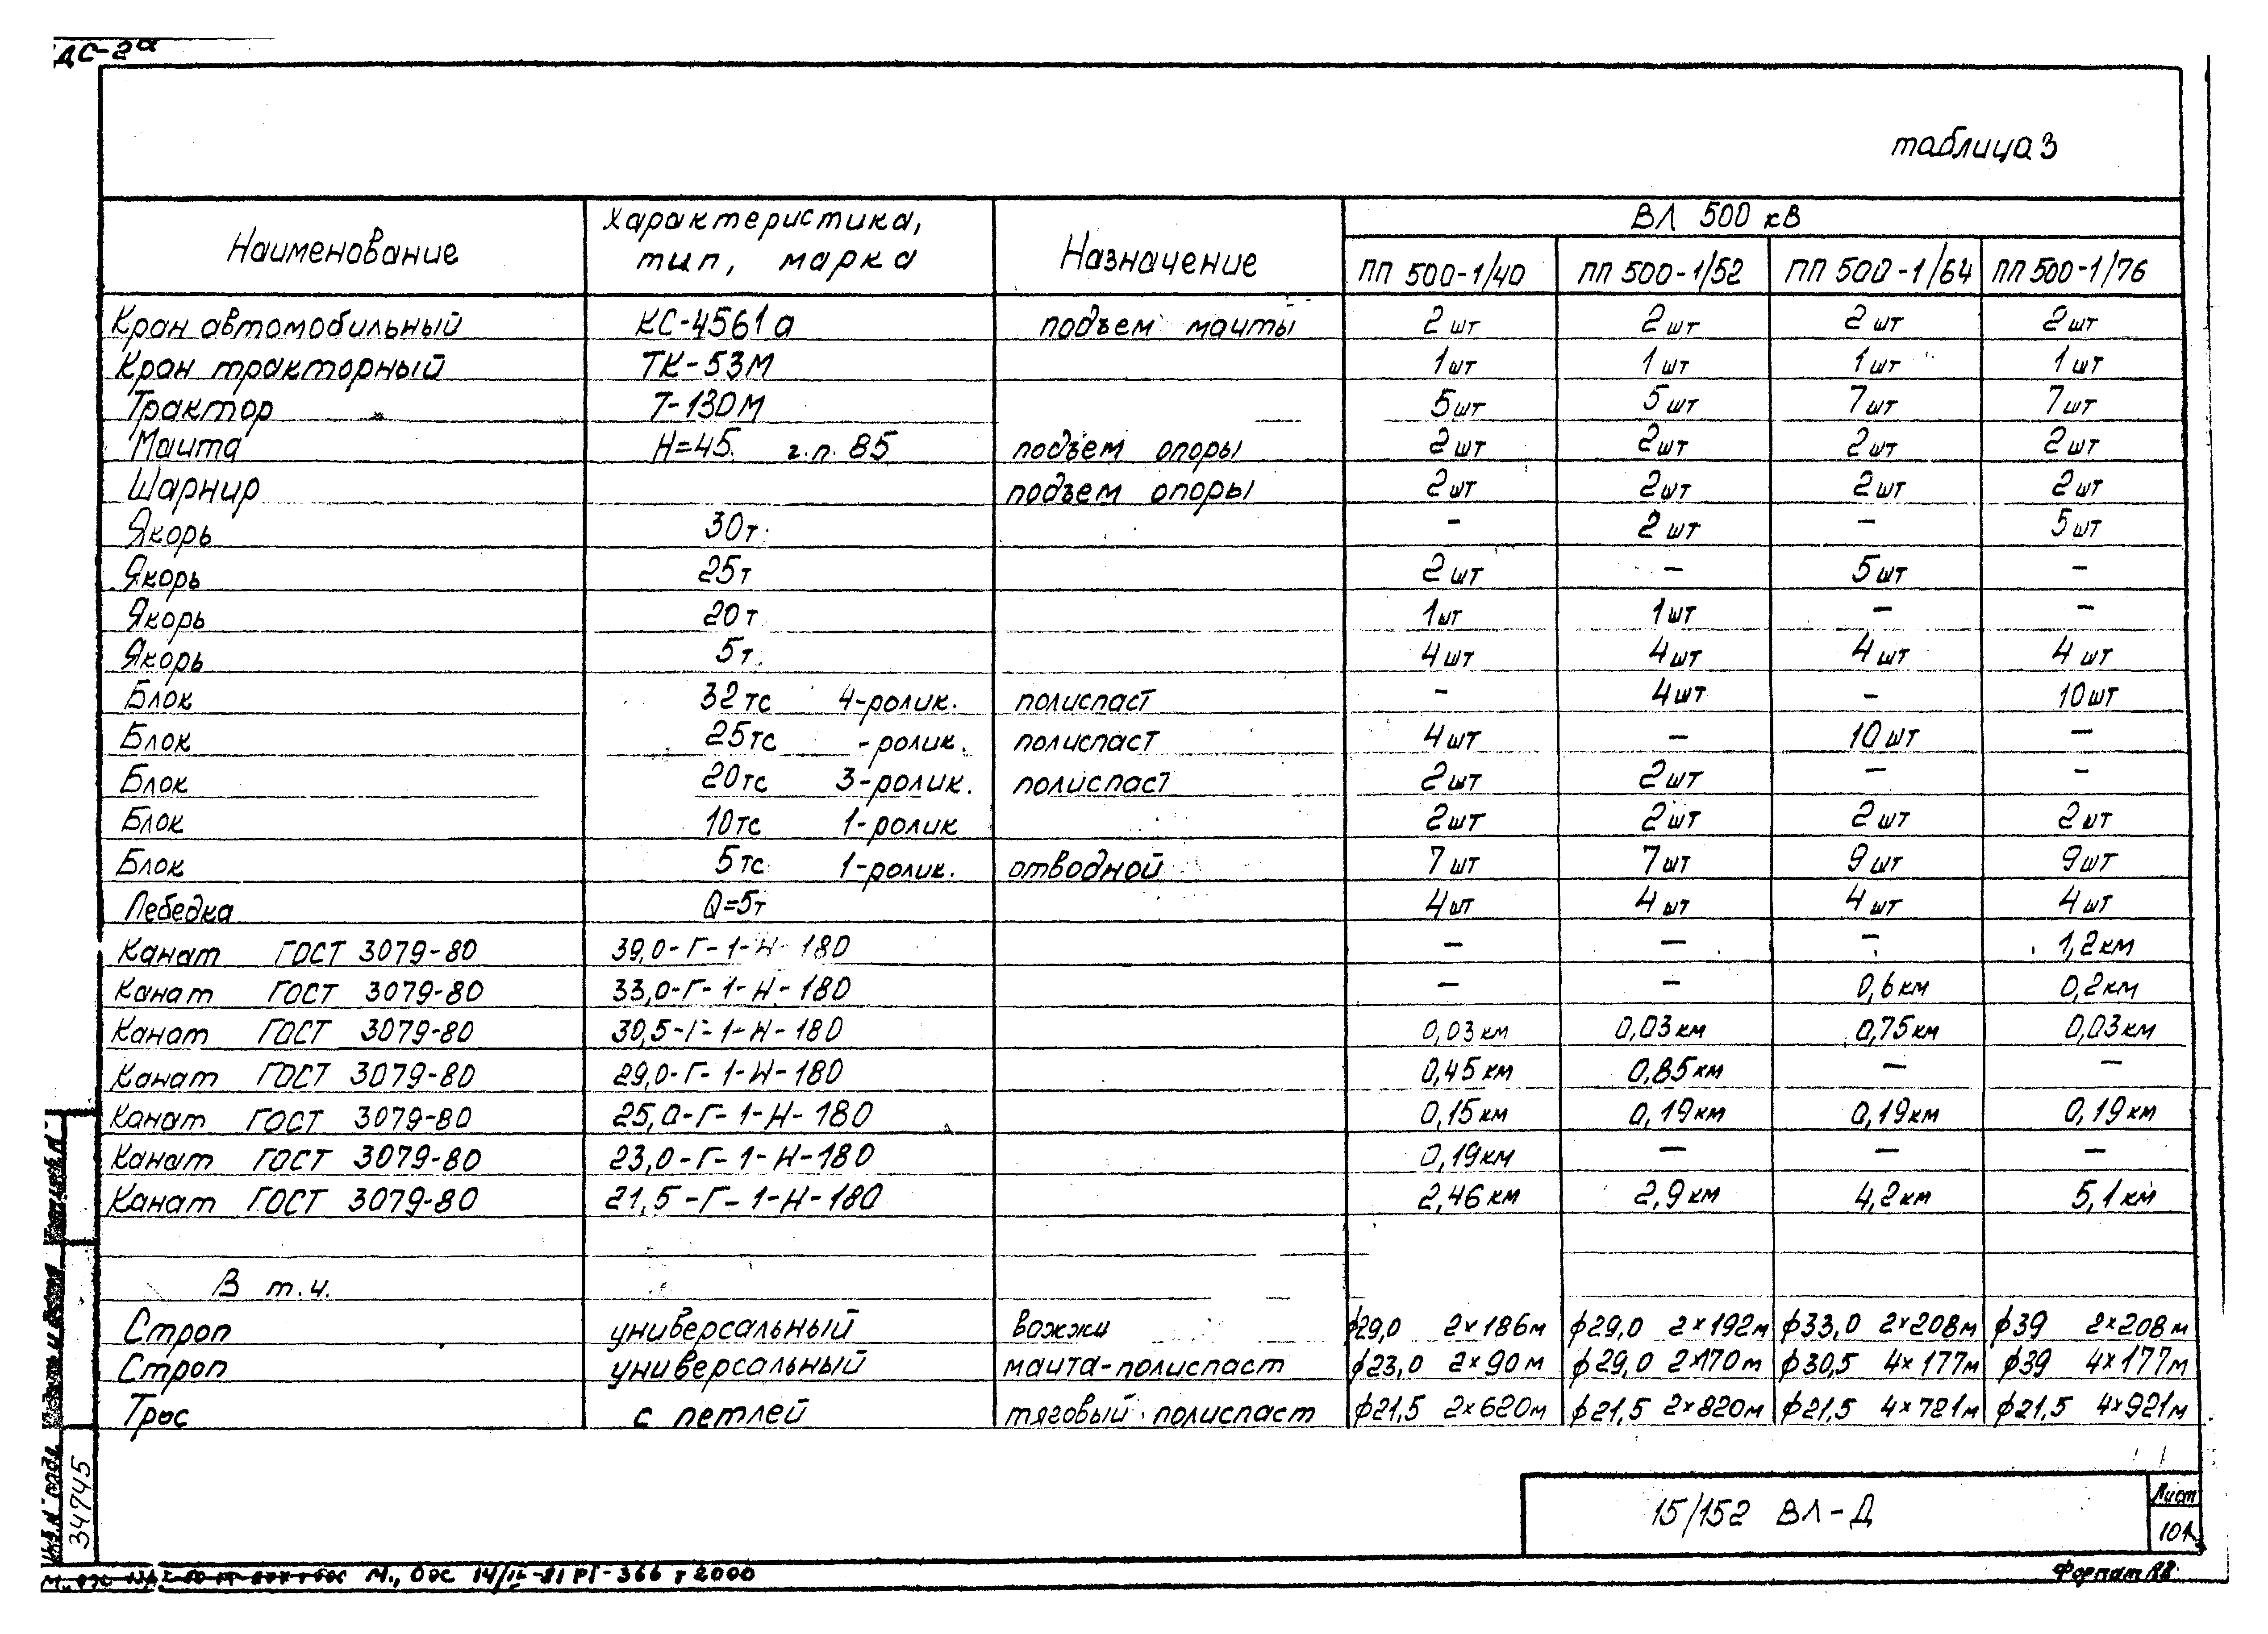 ДС-2а
таблица 3
Наименование Характеристика, тип, марка Назначение ВЛ 500 кВ
ПП 500-1/40 ПП 500-1/52 ПП 500-1/64 ПП 500-1/76
Кран автомобильный КС-4561а подъем мачты 2 шт 2 шт 2 шт 2 шт
Кран тракторный ТК-53М 1 шт 1 шт 1 шт 1 шт
Трактор Т-130М 5 шт 5 шт 7 шт 7 шт
Мачта Н=45. г.п. 85 подъем опоры 2 шт 2 шт 2 шт 2 шт
Шарнир подъем опоры 2 шт 2 шт 2 шт 2 шт
Якорь 30т. - 2 шт - 5 шт
Якорь 25т 2 шт - 5 шт -
Якорь 20т. 1 шт 1 шт - -
Якорь 5т. 4 шт 4 шт 4 шт 4 шт
Блок 32тс 4-ролик. полиспаст - 4 шт - 10 шт
Блок 25тс -ролик. полиспаст 4 шт - 10 шт -
Блок 20тс 3-ролик. полиспаст 2 шт 2 шт - -
Блок 10тс 1-ролик 2 шт 2 шт 2 шт 2 шт
Блок 5тс 1-ролик. отводной 7 шт 7 шт 9 шт 9 шт
Лебедка Q=5т 4 шт 4 шт 4 шт 4 шт
Канат ГОСТ 3079-80 39,0-Г-1-Н-180 - - - 1,2км
Канат ГОСТ 3079-80 33,0-Г-1-Н-180 - - 0,6км 0,2км
Канат ГОСТ 3079-80 30,5-Г-1-Н-180 0,03км 0,03км 0,75км 0,03км
Канат ГОСТ 3079-80 29,0-Г-1-Н-180 0,45км 0,85км - -
Канат ГОСТ 3079-80 25,0-Г-1-Н-180 0,15км 0,19км 0,19км 0,19км
Канат ГОСТ 3079-80 23,0-Г-1-Н-180 0,19км - - -
Канат ГОСТ 3079-80 21,5-Г-1-Н-180 2,46км 2,9км 4,2км 5,1км
В т.ч.
Строп универсальный вожжи ϕ29,0 2×186м ϕ29,0 2×192м ϕ33,0 2×208м ϕ39 2×208м
Строп универсальный мачта-полиспаст ϕ23,0 2×90м ϕ29,0 2×170м ϕ30,5 4×177м ϕ39 4×177м
Трос с петлей тяговый полиспаст ϕ21,5 2×620м ϕ21,5 2×820м ϕ21,5 4×721м ϕ21,5 4×921м
Инв.N подл.
34745
15/152 ВЛ-Д
Лист
101
Формат